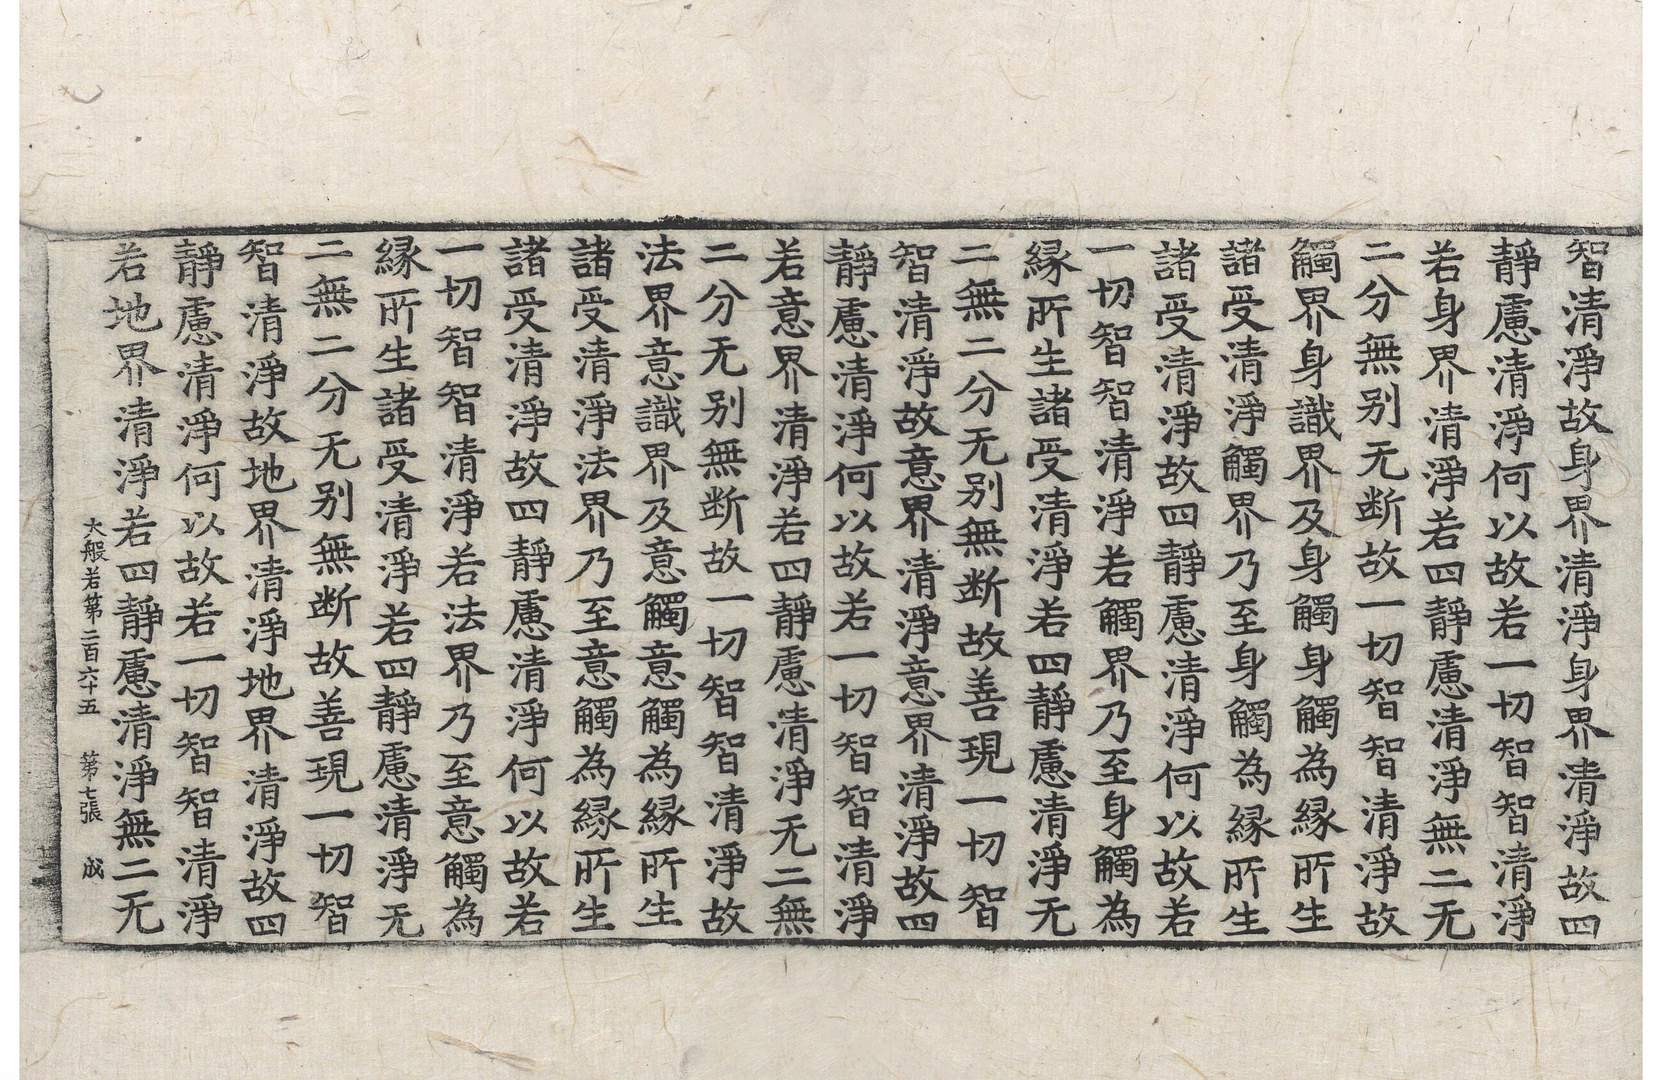 智清淨故身界清淨身界清淨故四
靜慮清淨何以故若一切智智清淨
若身界清淨若四靜慮清淨無二无
二分無别无断故一切智智清淨故
觸界身識界及身觸身觸為緣所生
諸受清淨觸界乃至身觸為緣所生
諸受清淨故四靜慮清淨何以故若
一切智智清淨若觸界乃至身觸為
緣所生諸受清淨若四靜慮清淨无
二無二分无别無断故善現一切智
智清淨故意界清淨意界清淨故四
靜慮清淨何以故若一切智智清淨
若意界清淨若四靜慮清淨无二無
二分无别無断故一切智智清淨故
法界意識界及意觸意觸為緣所生
諸受清淨法界乃至意觸為緣所生
諸受清淨故四靜慮清淨何以故若
一切智智清淨若法界乃至意觸為
緣所生諸受清淨若四靜慮清淨无
二無二分无别無断故善現一切智
智清淨故地界清淨地界清淨故四
靜慮清淨何以故若一切智智清淨
若地界清淨若四靜慮清淨無二无
大般若第二百六十五 第七張 成